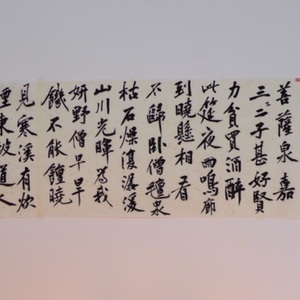 菩薩泉嘉
三二子甚好賢
力貧買酒醉
此筵夜雨鳴廊
到曉懸相看
不歸臥僧氈泉
枯石燥復潺湲
山川光暉為我
妍野僧早旱
饑不能饘曉
見寒溪有炊
煙東坡道人